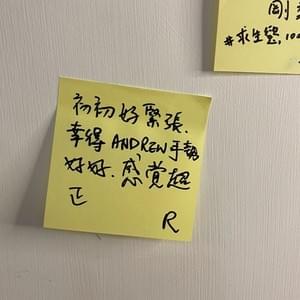 剛
#求生塾,100
初初好緊張.
幸得 ANDREW 手勢
好好. 感覚超
正
R